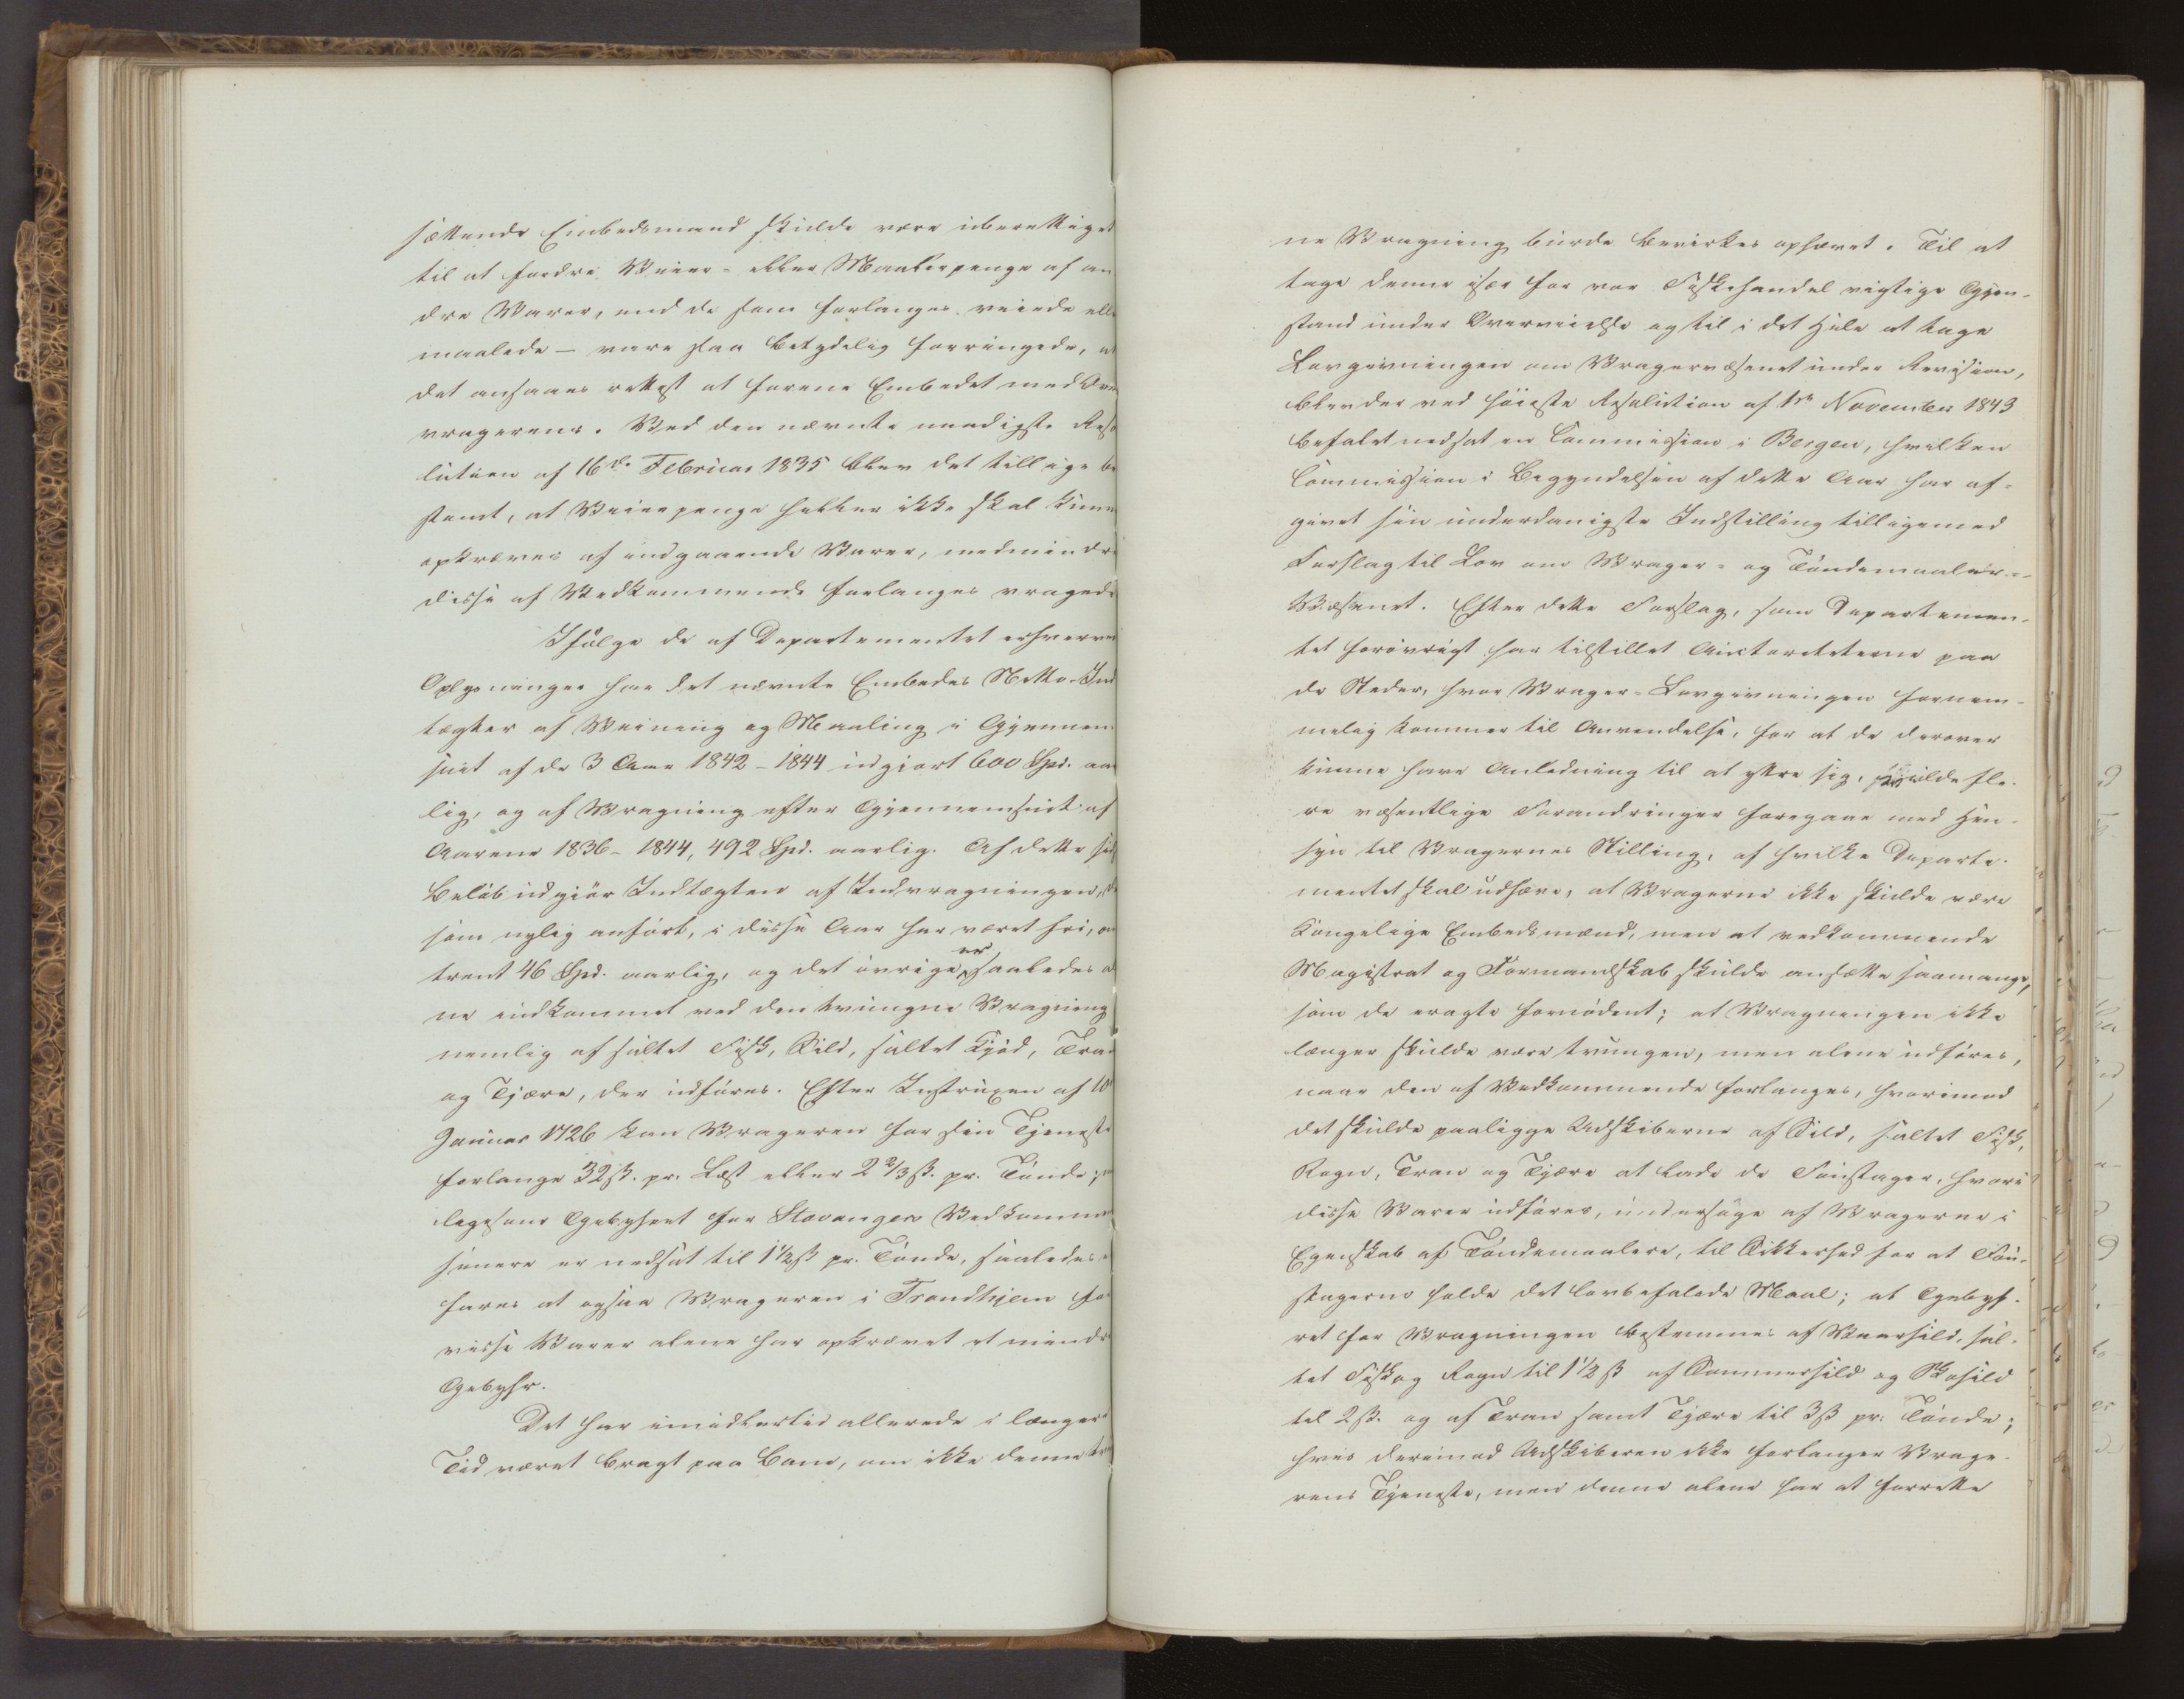 sættende Embedsmand skulde være uberettiget
til at fordre Veier- eller Maalerpenge af an
dre Varer, end de som forlanges veiede ell
maalede — vare saa betydelig forringede, at
det ansaaes rettest at forene Embedet med
vragerens. Ved den nævnte naadigste Reso
lution af 16de Februar 1835 blev det tillige be
stemt, at Veierpenge heller ikke skal kunne
opkræves af indgaaende Varer, medmindre
disse af Vedkommende forlanges vragede
Ifølge de af Departementet erhverved
Oplysninger har det nævnte Embedes Netto-Ind
tægter af Veining og Maaling i Gjennem
snit af de 3 Aar 1842 - 1844 udgjort 600 Spd. aar
lig, og af Vragning efter Gjennemsnit af
Aarene 1836 - 1844, 492 Spd. aarlig. Af dette sid
Beløb udgiør Indtægten af Indvragningen, de
som nylig anført, i disse Aar har været fri, om
trent 46 Spd. aarlig, og det øvrige er saaledes a
ne indkommet ved den tvungne Vragning
nemlig af saltet Fisk, Sild, saltet Kjød, Tran
og Tjære, der udføres. Efter Instruxen af 10
Januar 1726 kan Vrageren for sin Tjeneste
forlange 32 ß. pr. Læst eller 2 2/3 ß. pr. Tønde;
ligesom Gebyhret for Stavangers Vedkommen
senere er nedsat til 1 1/2 ß pr. Tønde, saaledes e
fares at ogsaa Vrageren i Trondhjem for
visse Varer alene har opkrævet et mindre
Gebyhr.
Det har imidlertid allerede i længere
Tid været bragt paa Bane, om ikke denne tv
ne Vragning burde bevirkes ophævet. Til at
tage denne især for vor Fiskehandel vigtige Gjen-
stand under Overveielse og til i det Hele at tage
Lovgivningen om Vragervæsenet under Revision,
blev der ved høieste Resolution af 1ste November 1843
befalet nedsat en Commission i Bergen, hvilken
Commission i Begyndelsen af dette Aar har af-
givet sin underdanigste Indstilling tilligemed
Forslag til Lov om Vrager- og Tøndemaaler-
Væsenet. Efter dette Forslag, som Departemen-
tet forøvrigt har tilstillet Auctoriteterne paa
de Steder, hvor Vrager-Lovgivningen fornem-
melig kommer til Anvendelse, for at de derover
kunne have Anledning til at yttre sig, skulde fle-
re væsentlige Forandringer foregaae med Hen-
syn til Vragernes Stilling, af hvilke Departe-
mentet skal udhæve, at Vragerne ikke skulde være
Kongelige Embedsmænd, men at vedkommende
Magistrat og Formandskab skulde ansætte saamange,
som de eragte fornødent; at Vragningen ikke
længer skulde være tvungen, men alene udføres,
naar den af Vedkommende forlanges, hvorimod
det skulde paaligge Udskiberne af Sild, saltet Fisk,
Rogn, Tran og Tjære at lade de Foustager, hvori
disse Varer udføres, undersøge af Vragerne i
Egenskab af Tøndemaalere, til Sikkerhed for at Fou-
stagerne holde det lovbefalede Maal; at Gebyh-
ret for Vragningen bestemmes af Vaarsild, sal-
tet Fisk og Rogn til 1 1/2 ß af Sommersild og
til 2 ß. og af Tran samt Tjære til 3 ß pr. Tønde;
hvis derimod Udskiberen ikke forlanger Vrage-
rens Tjeneste, men denne alene har at forrette